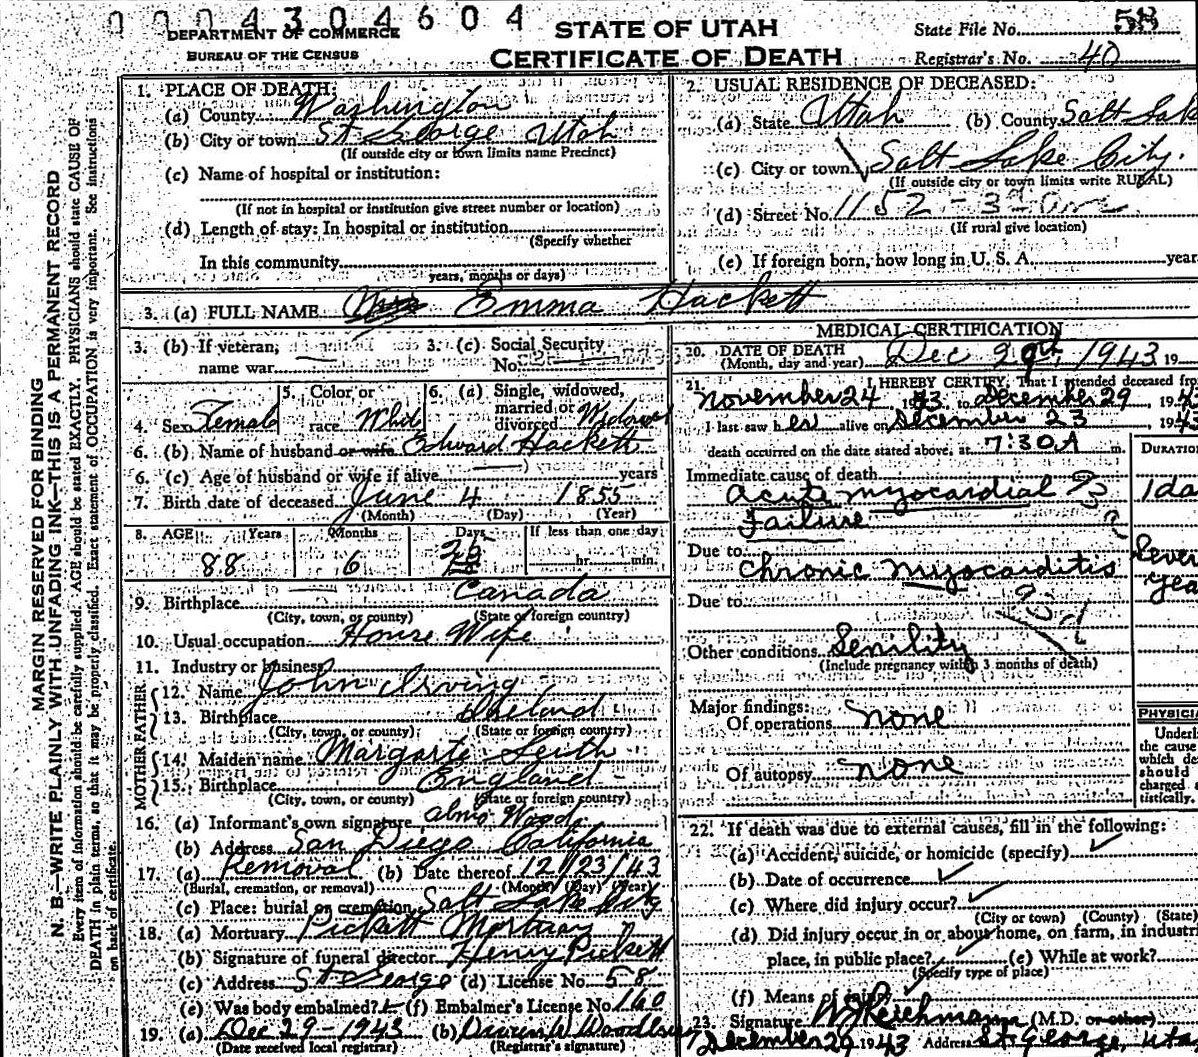 0004304604
DEPARTMENT OF COMMERCE
BUREAU OF THE CENSUS
STATE OF UTAH
CERTIFICATE OF DEATH
State File No. 58
Registrar's No. 40
MARGIN RESERVED FOR BINDING
N. B.—WRITE PLAINLY WITH UNFADING INK—THIS IS A PERMANENT RECORD
Every item of information should be carefully supplied. AGE should be stated EXACTLY. PHYSICIANS should state CAUSE OF
DEATH in plain terms, so that it may be properly classified. Exact statement of OCCUPATION is very important. See instructions
on back of certificate.
1. PLACE OF DEATH:
(a) County Washington
(b) City or town St George Utah
(If outside city or town limits name Precinct)
(c) Name of hospital or institution:
(If not in hospital or institution give street number or location)
(d) Length of stay: In hospital or institution
(Specify whether
In this community
years, months or days)
2. USUAL RESIDENCE OF DECEASED:
(a) State Utah (b) County Salt Lak
(c) City or town Salt Lake City.
(If outside city or town limits write RURAL)
(d) Street No. 1152 - 3rd Ave
(If rural give location)
(e) If foreign born, how long in U. S. A. year
3. (a) FULL NAME Mrs Emma Hackett
3. (b) If veteran, name war
3. (c) Social Security No.
4. Sex Female
5. Color or race White
6. (a) Single, widowed, married or divorced Widowed
6. (b) Name of husband or wife Edward Hackett
6. (c) Age of husband or wife if alive years
7. Birth date of deceased June 4 1855
(Month) (Day) (Year)
8. AGE Years Months Days If less than one day
88 6 hr. min.
9. Birthplace Canada
(City, town, or county) (State or foreign country)
10. Usual occupation House Wife
11. Industry or business
FATHER
12. Name John Irving
13. Birthplace Ireland
(City, town, or county) (State or foreign country)
MOTHER
14. Maiden name Margarte Leith
15. Birthplace England
(City, town, or county) (State or foreign country)
16. (a) Informant's own signature Alma Woods
(b) Address San Diego California
17. (a) Removal (b) Date thereof 12/23/43
(Burial, cremation, or removal) (Month) (Day) (Year)
(c) Place: burial or cremation Salt Lake City
18. (a) Mortuary Pickett Mortuary
(b) Signature of funeral director Henry Pickett
(c) Address St George (d) License No. 58
(e) Was body embalmed? (f) Embalmer's License No. 160
19. (a) Dec 29-1943 (b)
(Date received local registrar) (Registrar's signature)
MEDICAL CERTIFICATION
20. DATE OF DEATH Dec 29th, 1943 19
(Month, day and year)
21. I HEREBY CERTIFY, That I attended deceased fr
November 24 1943 to December 29 194
I last saw her alive on December 23 1943
death occurred on the date stated above, at 7:30 A m.
DURATIO
Immediate cause of death
Acute myocardial 1 da
Failure
Due to Chronic myocarditis Sever
yea
Due to 93d
Other conditions Senility
(Include pregnancy within 3 months of death)
Major findings:
Of operations none
Of autopsy none
PHYSICIA
Underl
the cause
which de
should
charged s
tistically.
22. If death was due to external causes, fill in the following:
(a) Accident, suicide, or homicide (specify)
(b) Date of occurrence
(c) Where did injury occur?
(City or town) (County) (State)
(d) Did injury occur in or about home, on farm, in industri
place, in public place? (e) While at work?
(Specify type of place)
(f) Means of injury
23. Signature W Reichmann (M.D. or other)
December 29 1943 Address St. George, Utah